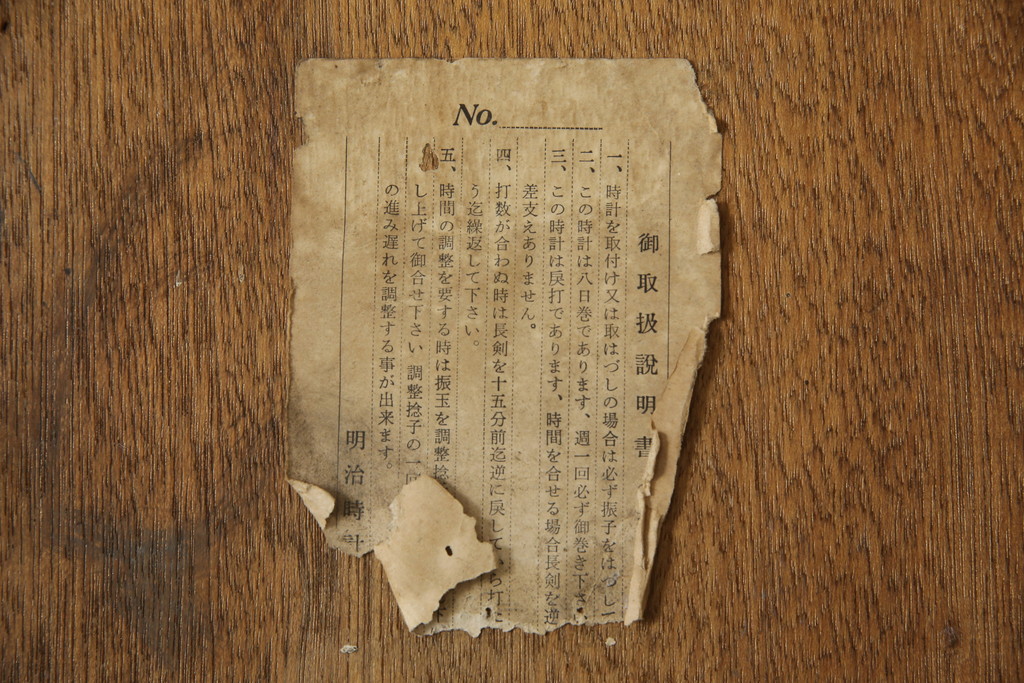 No.
御取扱說明書
一、時計を取付け又は取はづしの場合は必ず振子をはづし
二、この時計は八日巻であります、週一回必ず御巻き下さい
三、この時計は戻打であります、時間を合せる場合長劍を逆
差支えありません。
四、打数が合わぬ時は長劍を十五分前迄逆に戻して、
う迄繰返して下さい。
五、時間の調整を要する時は振玉を調整捻
し上げて御合せ下さい 調整捻子の一回
の進み遅れを調整する事が出来ます。
明治時計